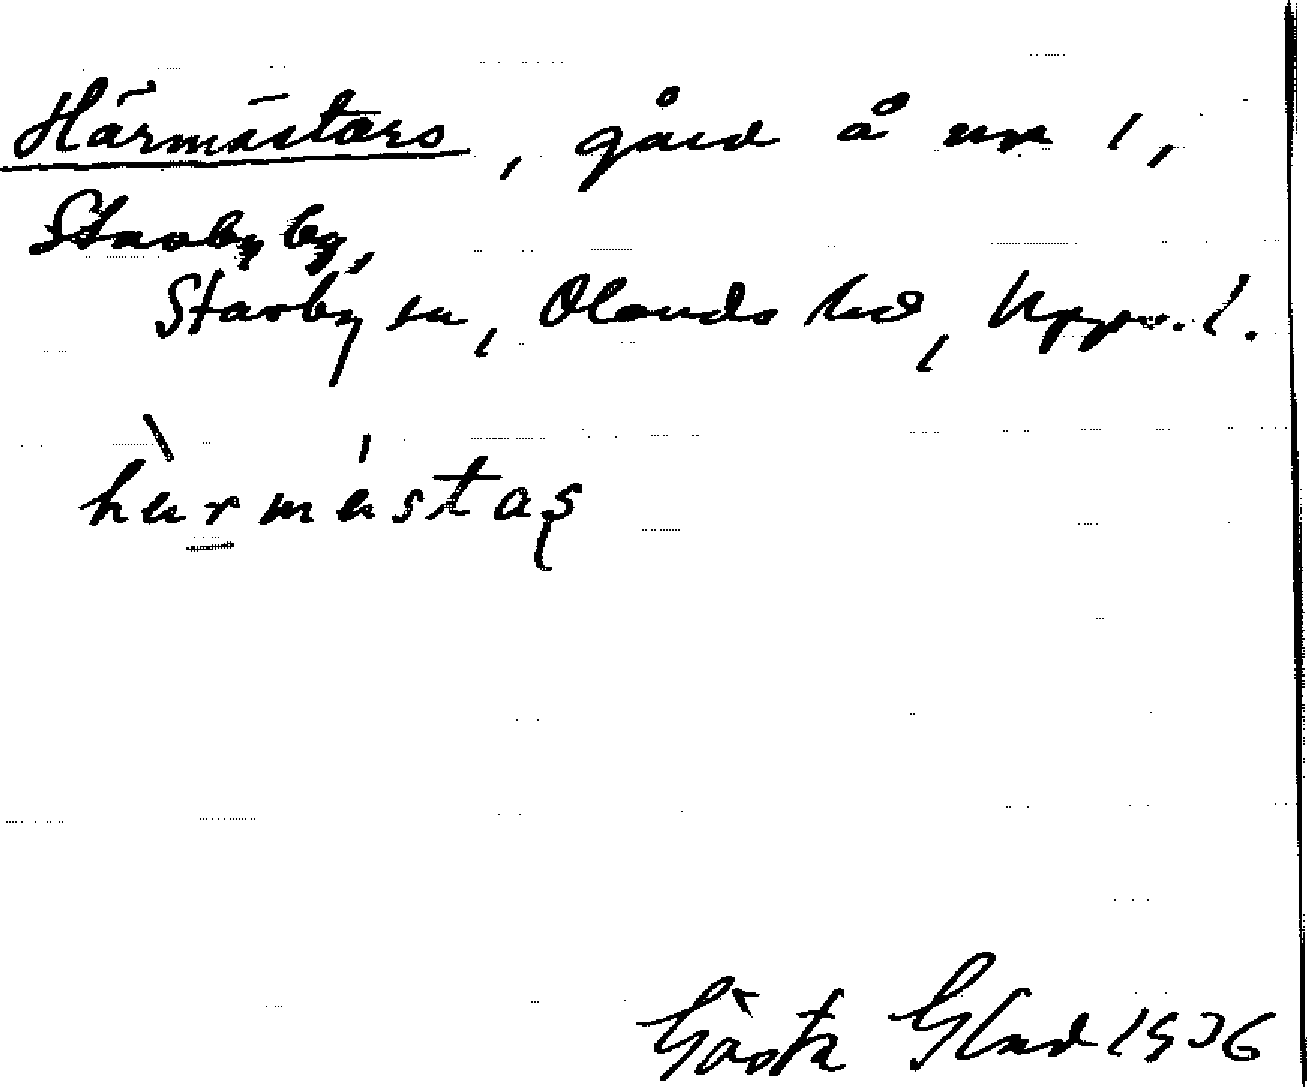 Härmästars, gård å nr 1,
Stavby by,
Stavby sn, Olands hd, Upps. l.
hä̀rmä́staʂ
Gösta Glad 1936